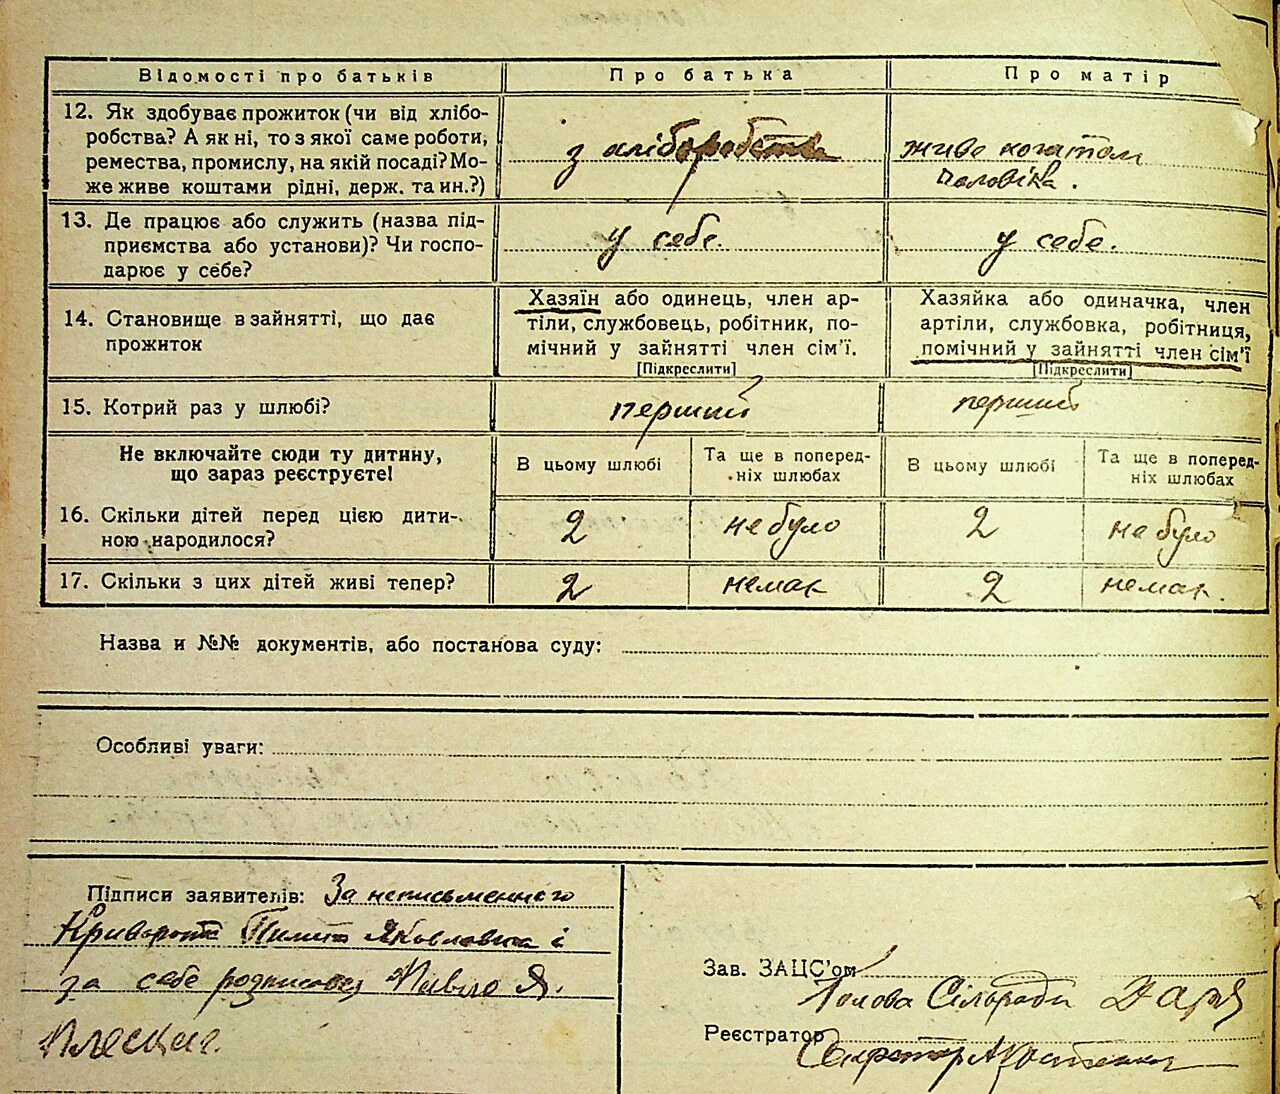 Відомості про батьків
Про батька
Про матір
12. Як здобуває прожиток (чи від хлібо-
робства? А як ні, то з якої саме роботи,
ремества, промислу, на якій посаді? Мо-
же живе коштами рідні, держ. та ин.?)
з хліборобства
живе коштом
чоловіка.
13. Де працює або служить (назва під-
приємства або установи)? Чи госпо-
дарює у себе?
у себе.
у себе.
14. Становище в зайнятті, що дає
прожиток
Хазяїн або одинець, член ар-
тіли, службовець, робітник, по-
мічний у зайнятті член сім'ї.
[Підкреслити]
Хазяйка або одиначка, член
артіли, службовка, робітниця,
помічний у зайнятті член сім'ї
[Підкреслити]
15. Котрий раз у шлюбі?
перший
перший
Не включайте сюди ту дитину,
що зараз реєструєте!
В цьому шлюбі
Та ще в поперед-
ніх шлюбах
В цьому шлюбі
Та ще в поперед-
ніх шлюбах
16. Скільки дітей перед цією дити-
ною народилося?
2
не було
2
не було
17. Скільки з цих дітей живі тепер?
2
немає
2
немає.
Назва и №№ документів, або постанова суду:
Особливі уваги:
Підписи заявителів: За неписьменного
Пилипа Яковловича і
за себе Павло Я.
Зав. ЗАЦС'ом
Голова Сільради
Реєстратор
Секретар